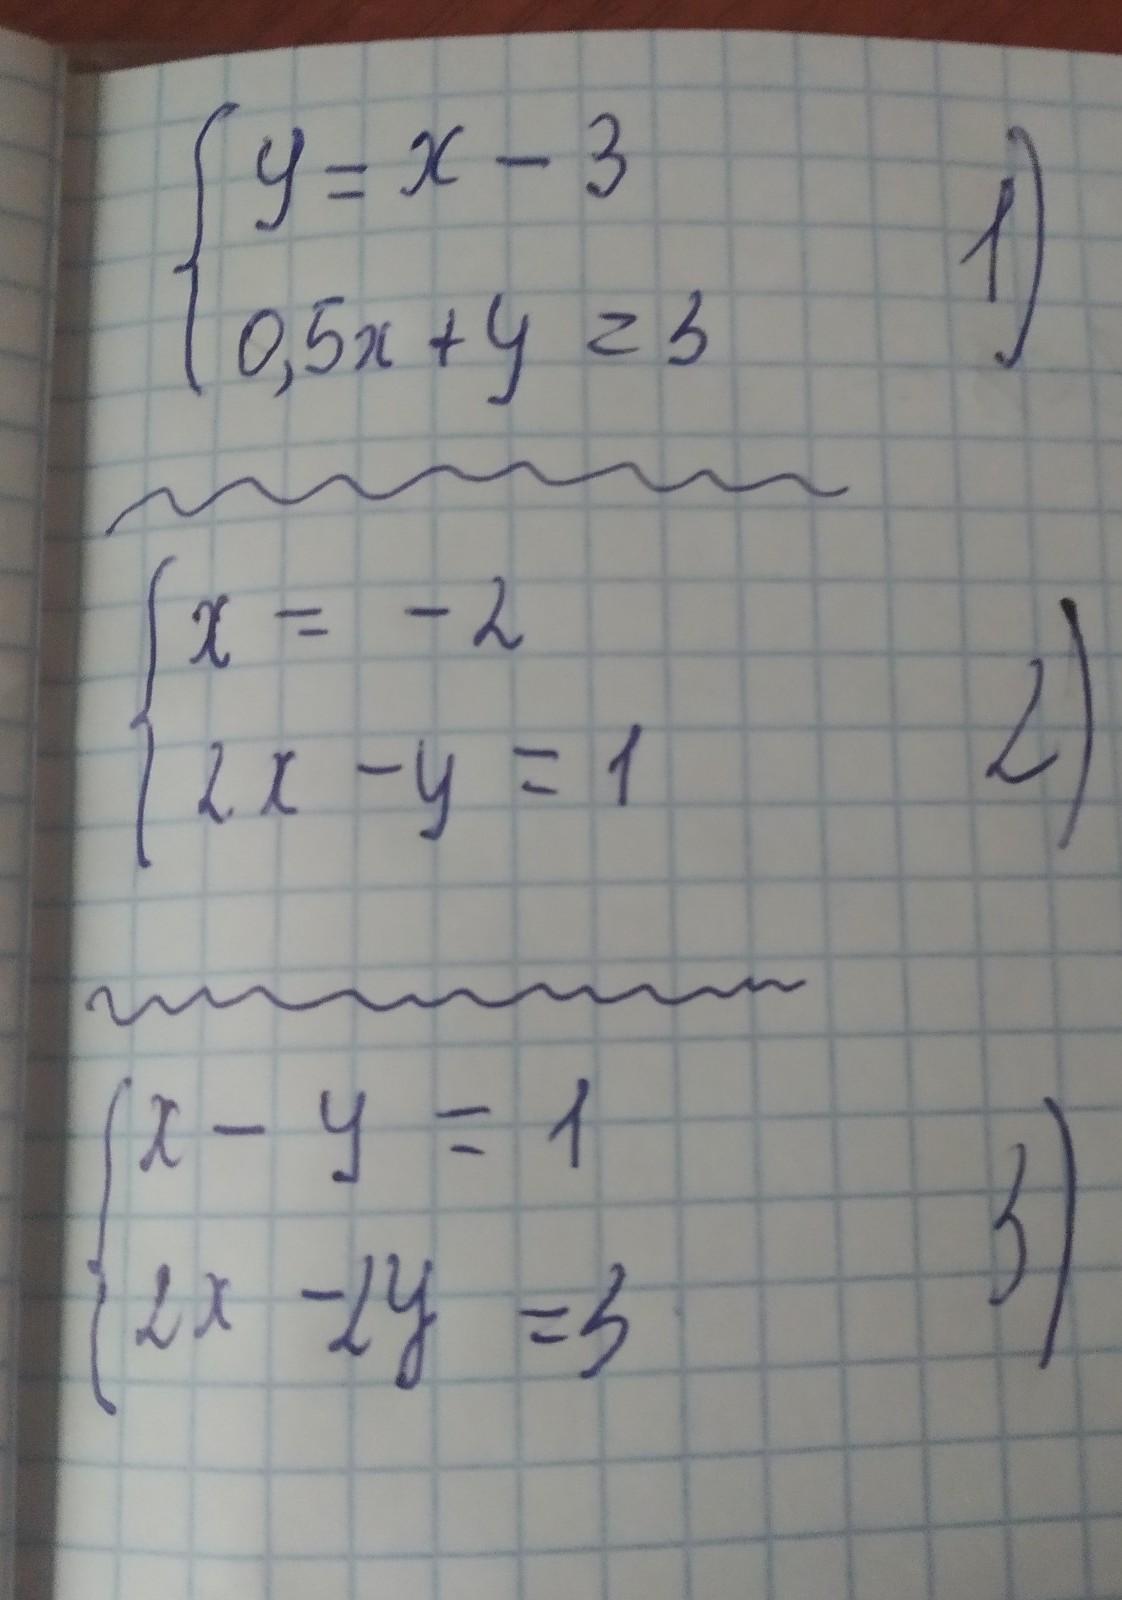 y = x - 3
0,5x + y = 3
1)
x = -2
2x - y = 1
2)
x - y = 1
2x - 2y = 3
3)